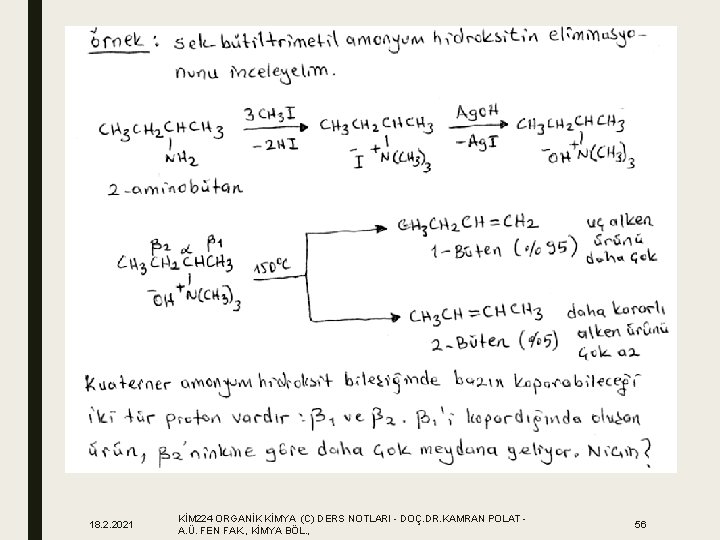 örnek : sek-bütiltrimetil amonyum hidroksitin eliminasyo-
nunu inceleyelim.
CH3CH2CHCH3 3CH3I CH3CH2CHCH3 AgOH CH3CH2CHCH3
NH2 -2HI -I +N(CH3)3 -AgI -OH +N(CH3)3
2-aminobütan
β2 α β1
CH3CH2CHCH3 150°C
-OH +N(CH3)3
CH3CH2CH=CH2 uç alken
1-Büten (%95) ürünü
daha çok
CH3CH=CHCH3 daha kararlı
2-Büten (%5) alken ürünü
çok az
Kuaterner amonyum hidroksit bileşiğinde bazın koparabileceği
iki tür proton vardır : β1 ve β2. β1'i kopardığında oluşan
ürün, β2'ninkine göre daha çok meydana geliyor. Niçin?
18.2.2021
KİM224 ORGANİK KİMYA (C) DERS NOTLARI - DOÇ.DR.KAMRAN POLAT -
A.Ü. FEN FAK., KİMYA BÖL.,
56